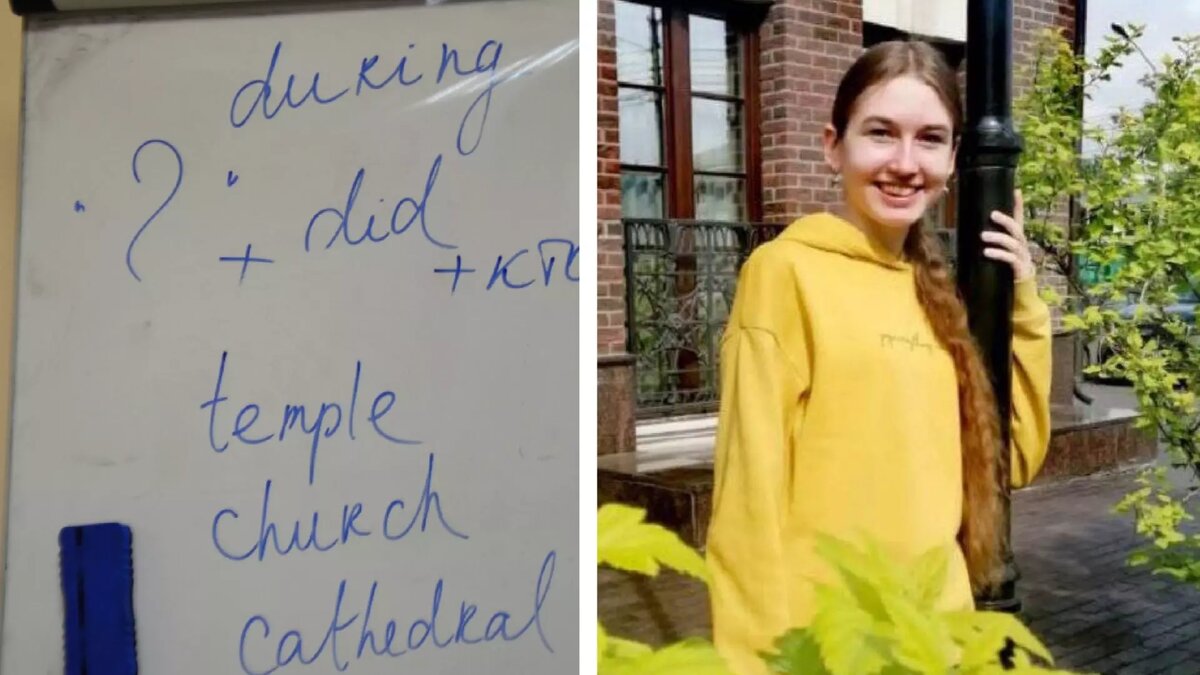 during
? + did + кто
temple
church
cathedral